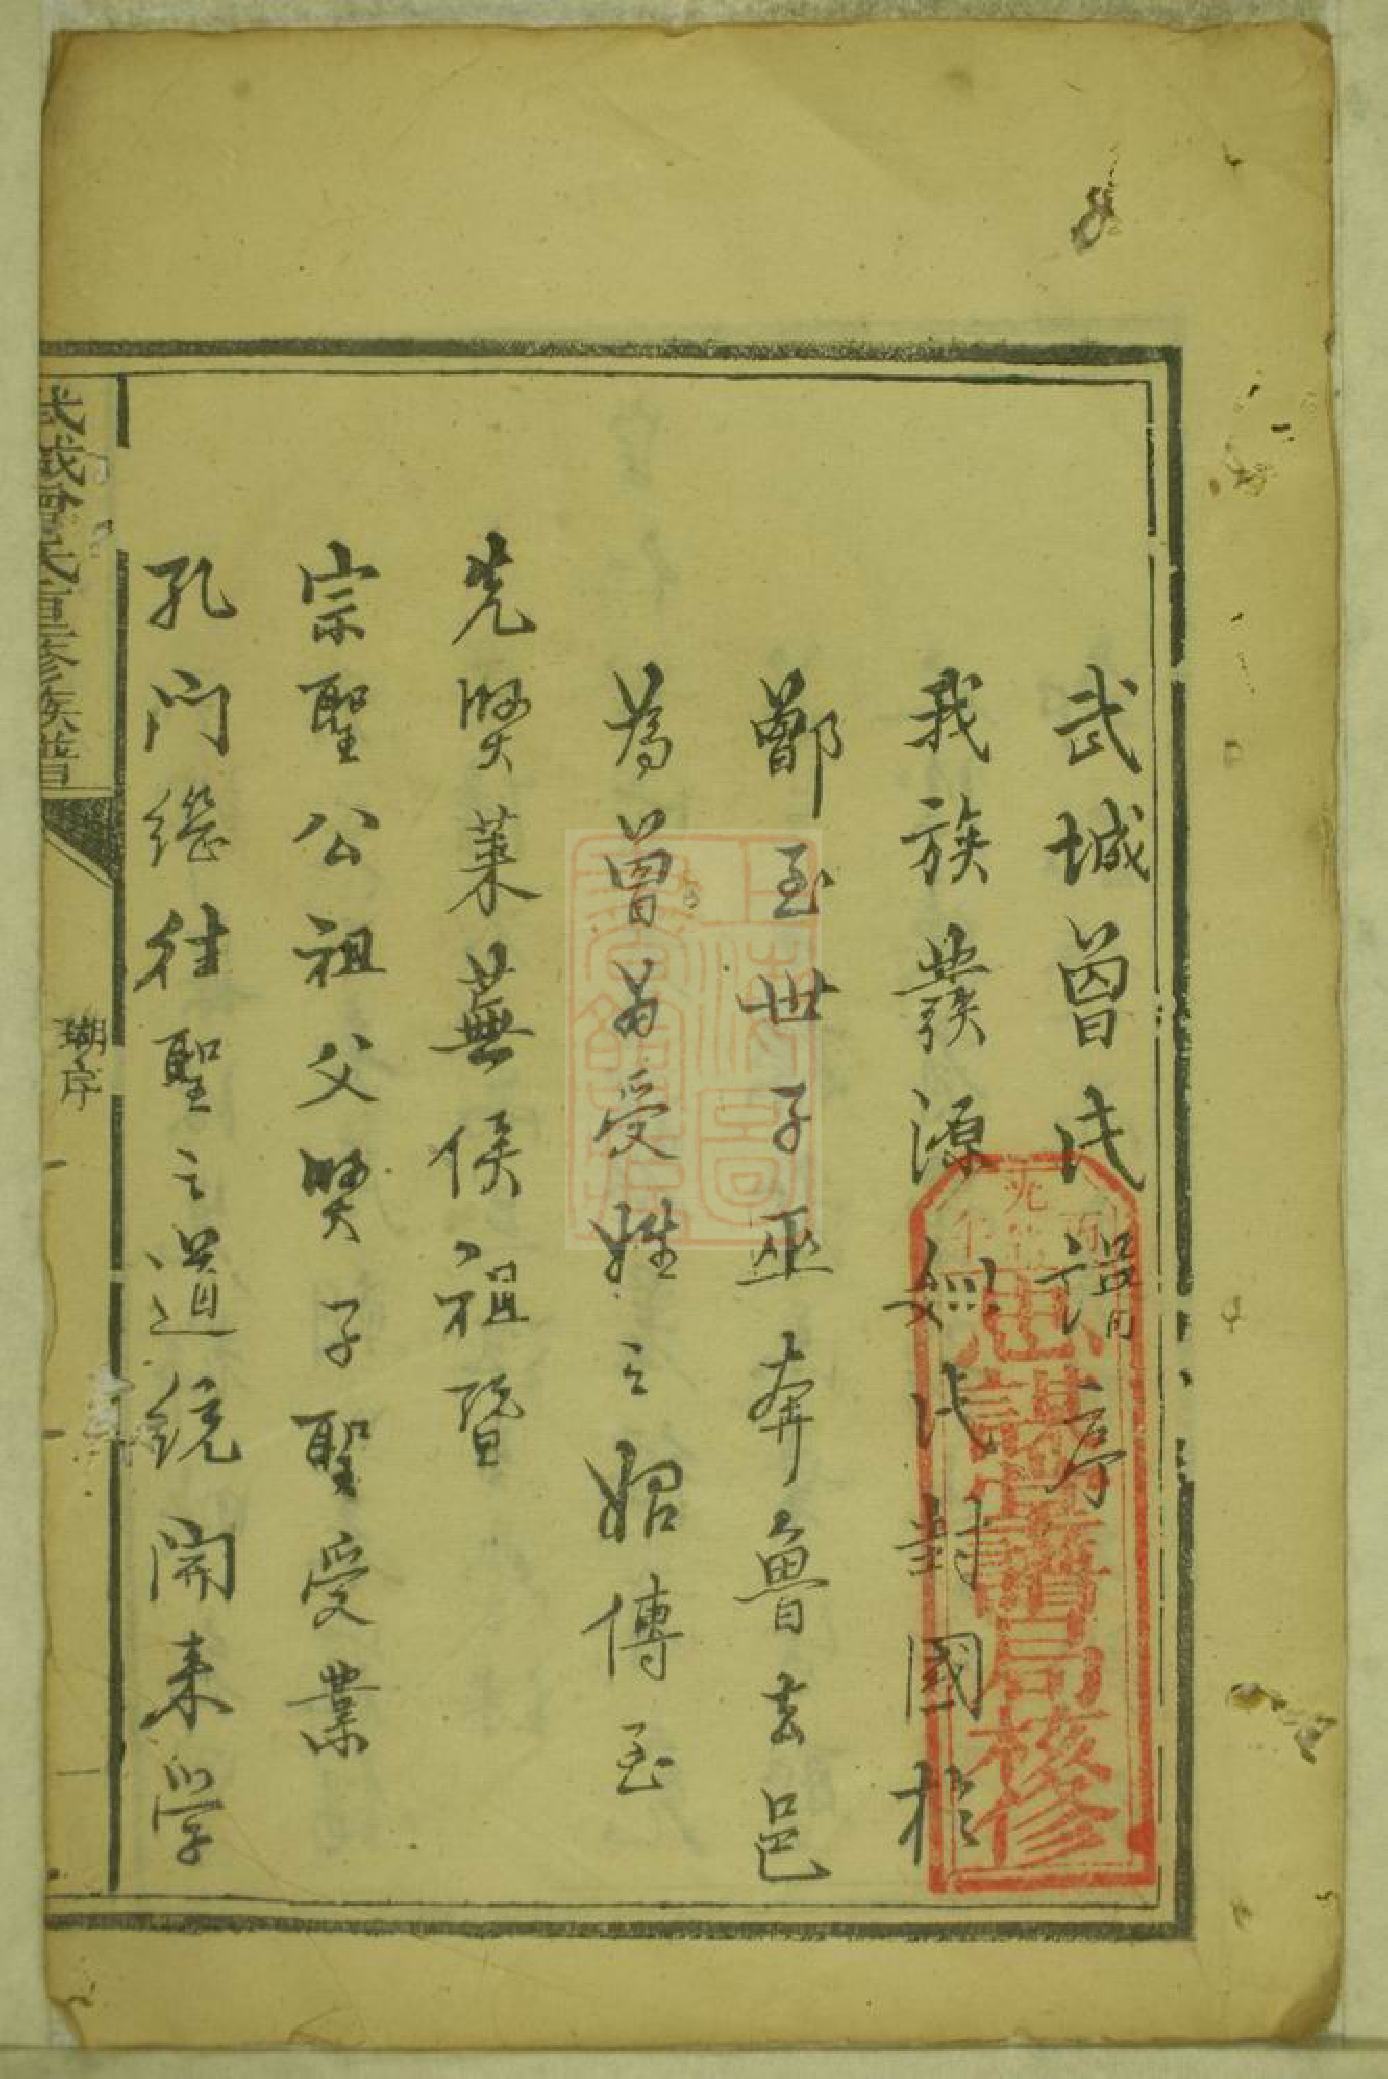 武城曾氏譜序
我族發源姒氏封國於
鄫至世子巫奔魯去邑
為曾為受姓之始傳至
先賢萊蕪侯祖暨
宗聖公祖父賢子聖受業
孔門繼往聖之道統開來學
武城曾氏重修族譜
序
上海圖書館藏
忠謨堂譜局核修